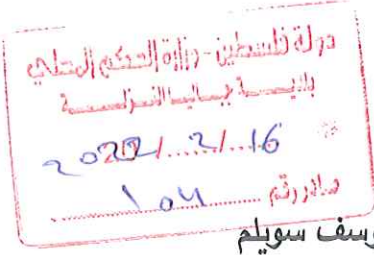 دولة فلسطين - وزارة الحكم المحلي
بلديـــة جباليا النـزلـــة
2022/...2/...16
صادر رقم
وسف سويلم